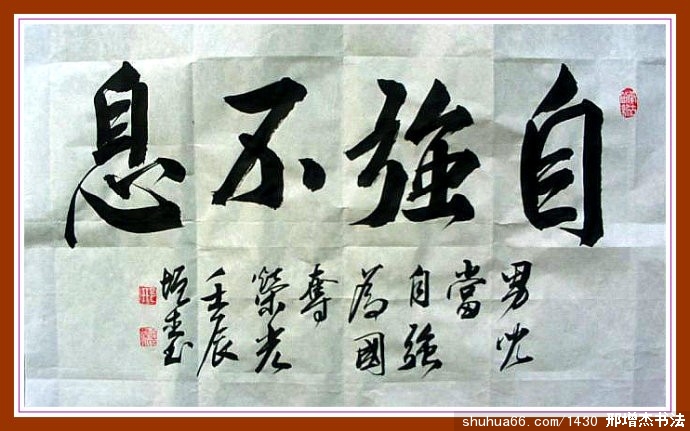 自強不息
男兒
當
自強
為國
奪
榮光
壬辰
增杰书
shuhua66.com/1430 邢增杰书法